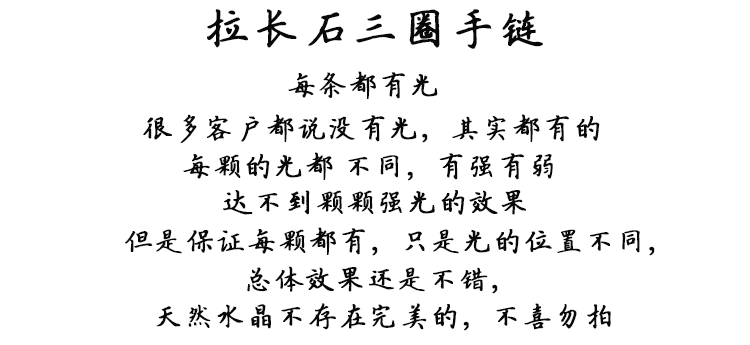 拉长石三圈手链
每条都有光
很多客户都说没有光，其实都有的
每颗的光都 不同，有强有弱
达不到颗颗强光的效果
但是保证每颗都有，只是光的位置不同，
总体效果还是不错，
天然水晶不存在完美的，不喜勿拍